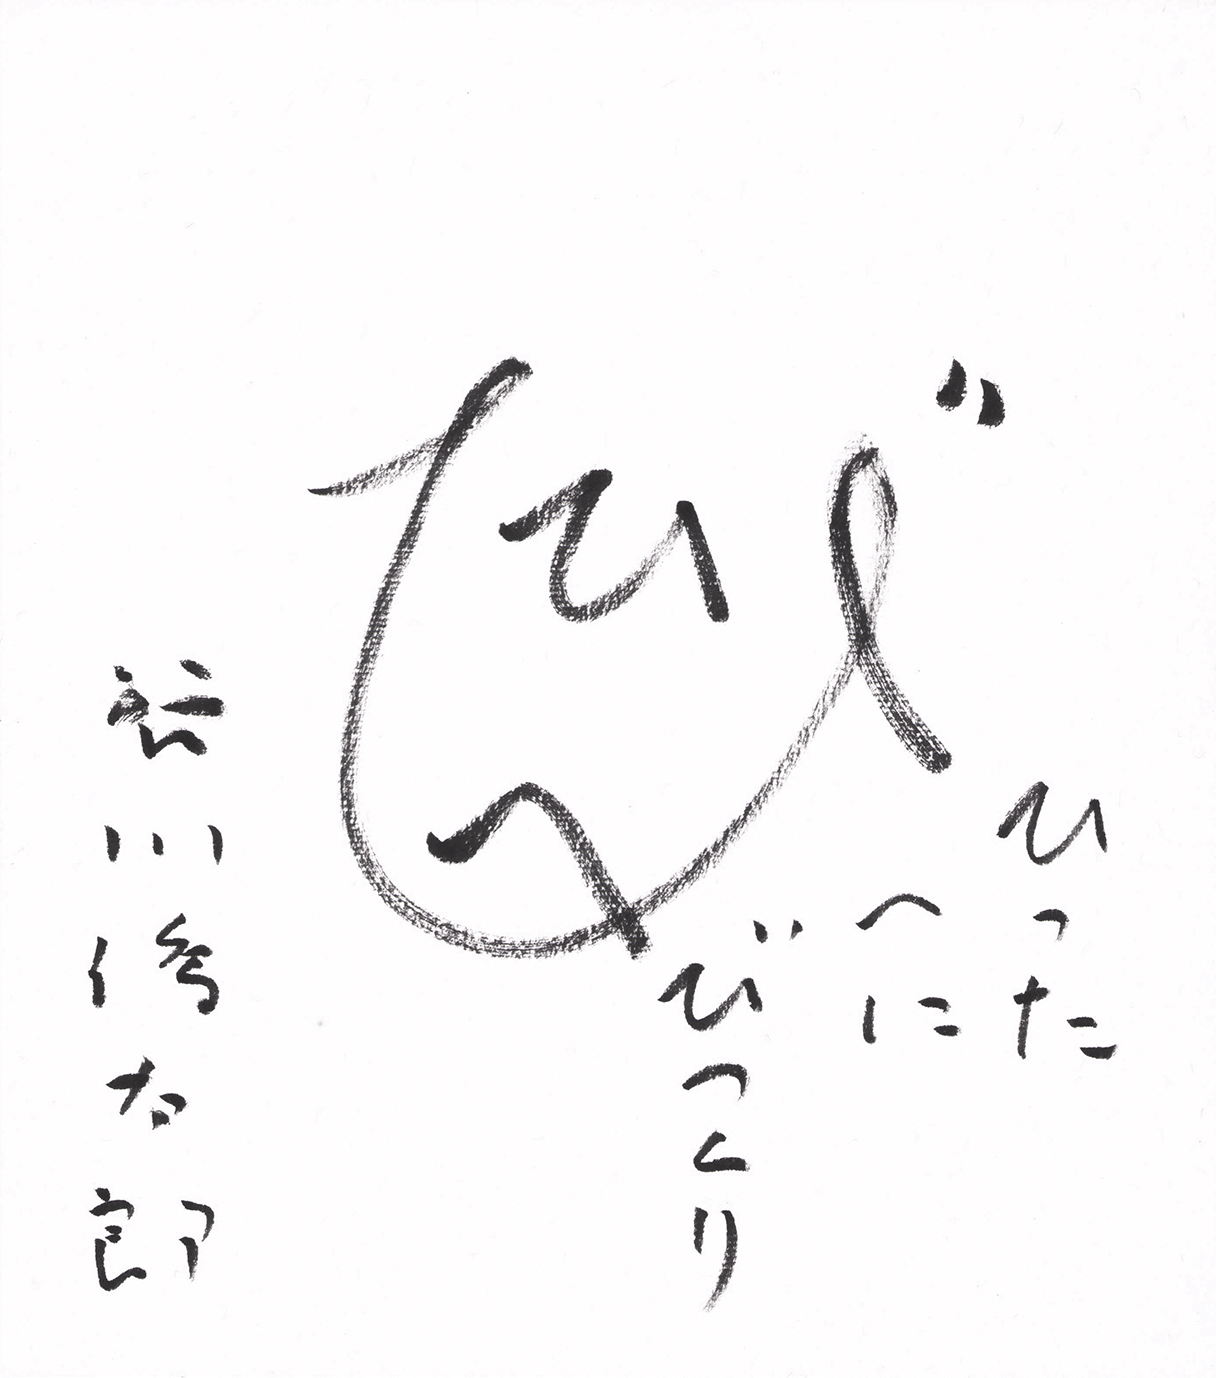 び
ひ
へ
ひった
へに
びっくり
谷川俊太郎